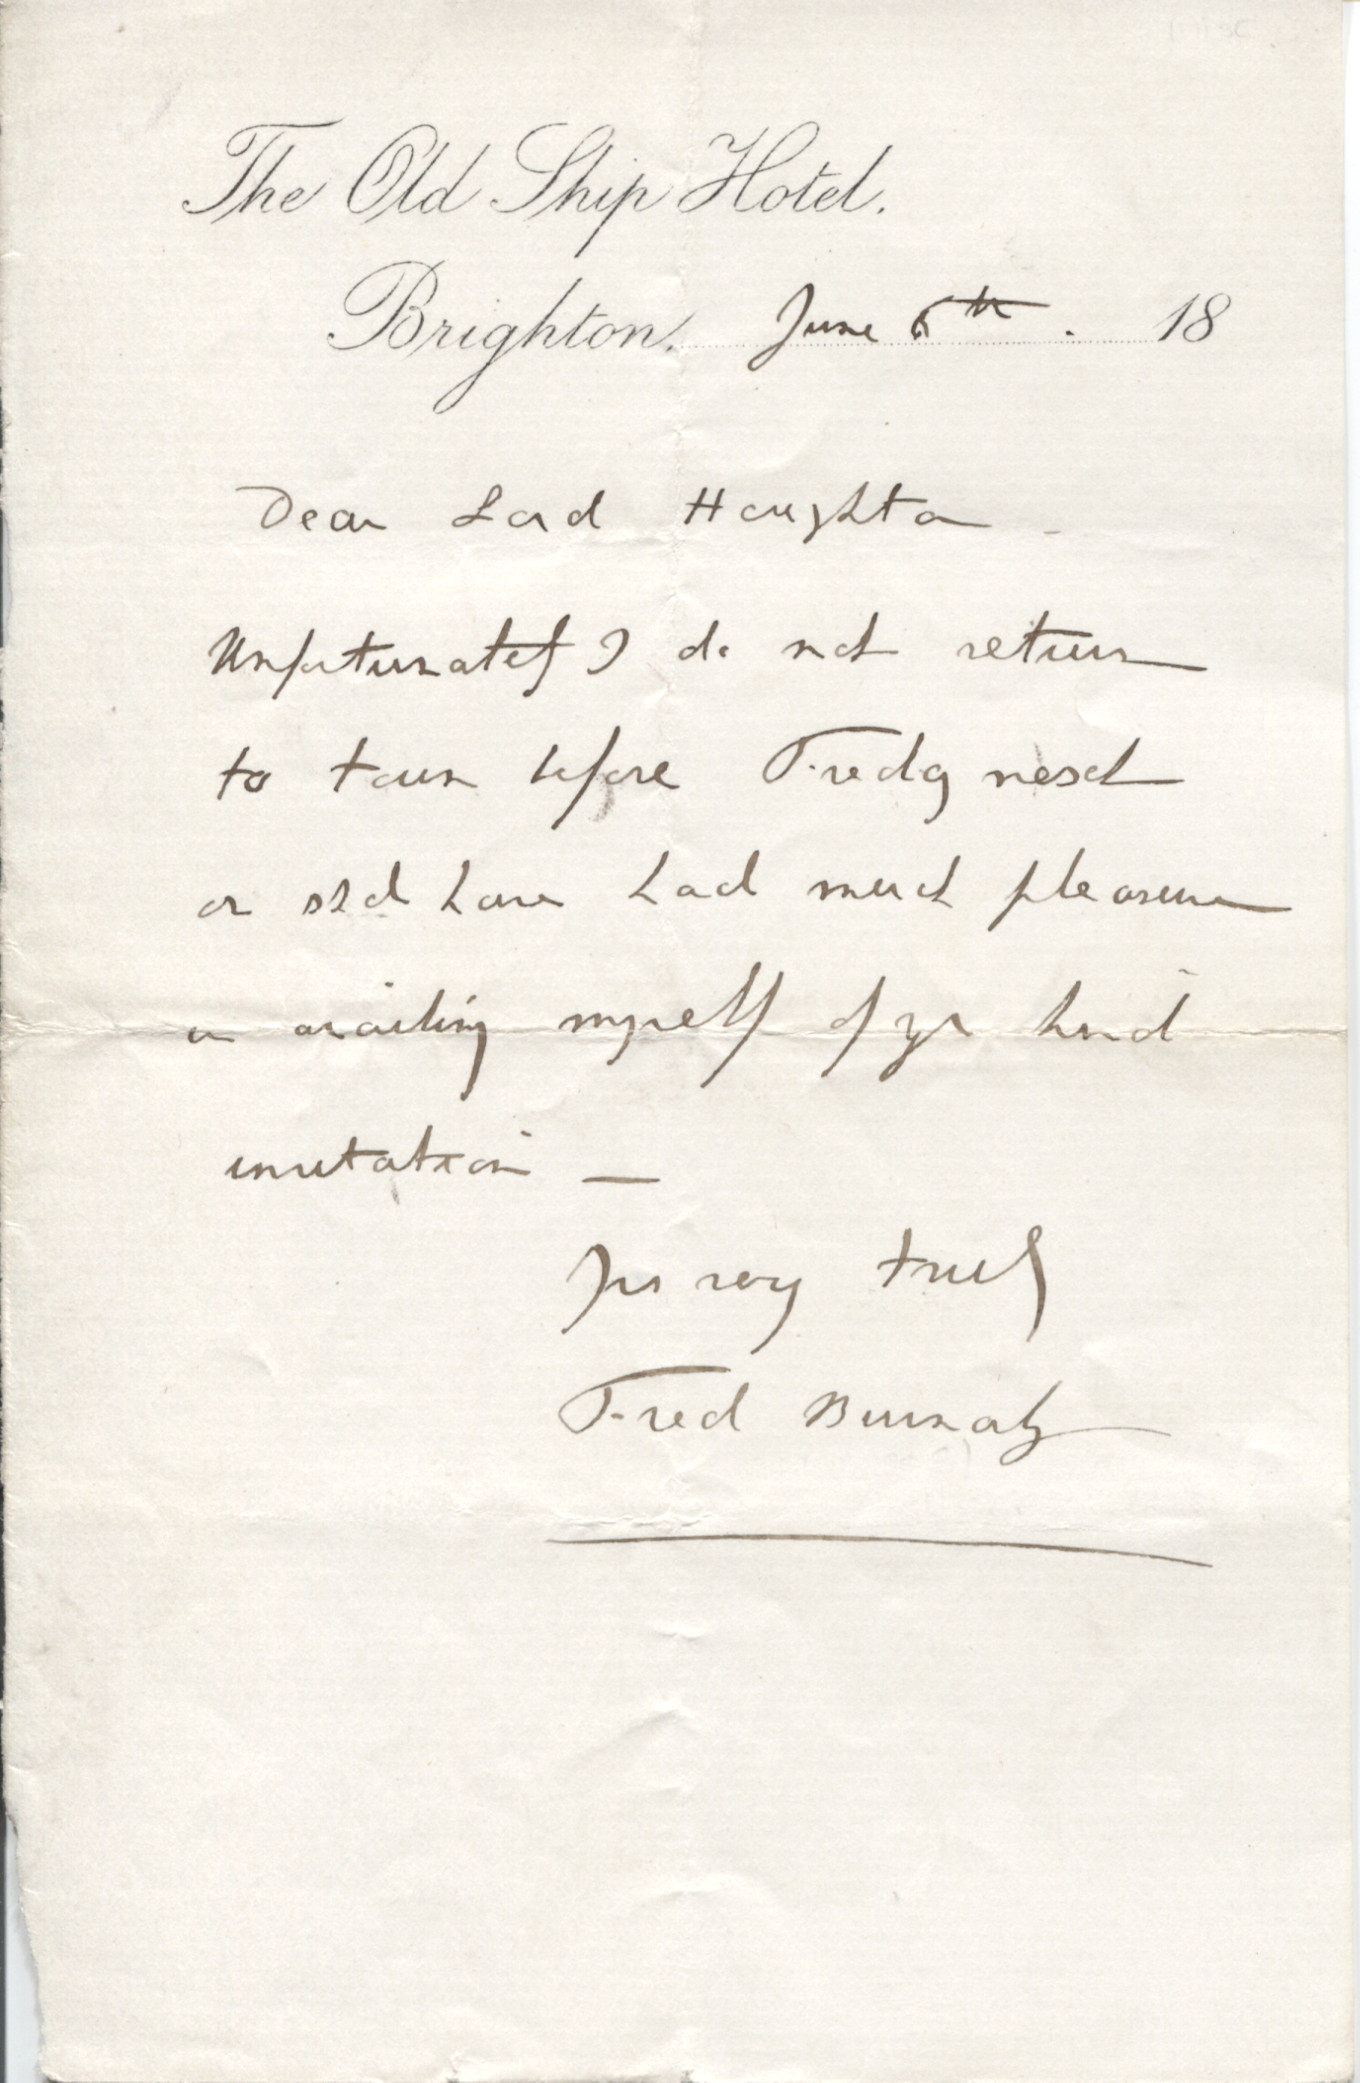 The Old Ship Hotel.
Brighton. June 6th. 18
Dear Lord Houghton
Unfortunately I do not return
to town before Friday next
or shd have had much pleasure
in availing myself of yr kind
invitation —
Yrs very truly
Fred Burnaby